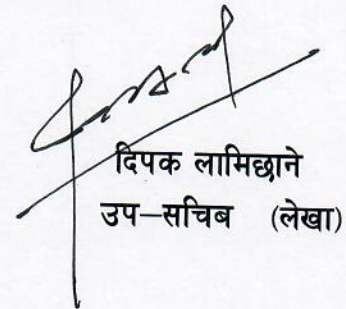 दिपक लामिछाने
उप–सचिब (लेखा)